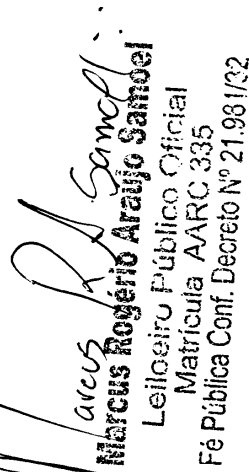 Marcus R A Samoel
Marcus Rogério Araujo Samoel
Leiloeiro Público Oficial
Matrícula AARC 335
Fé Pública Conf. Decreto Nº 21.981/32